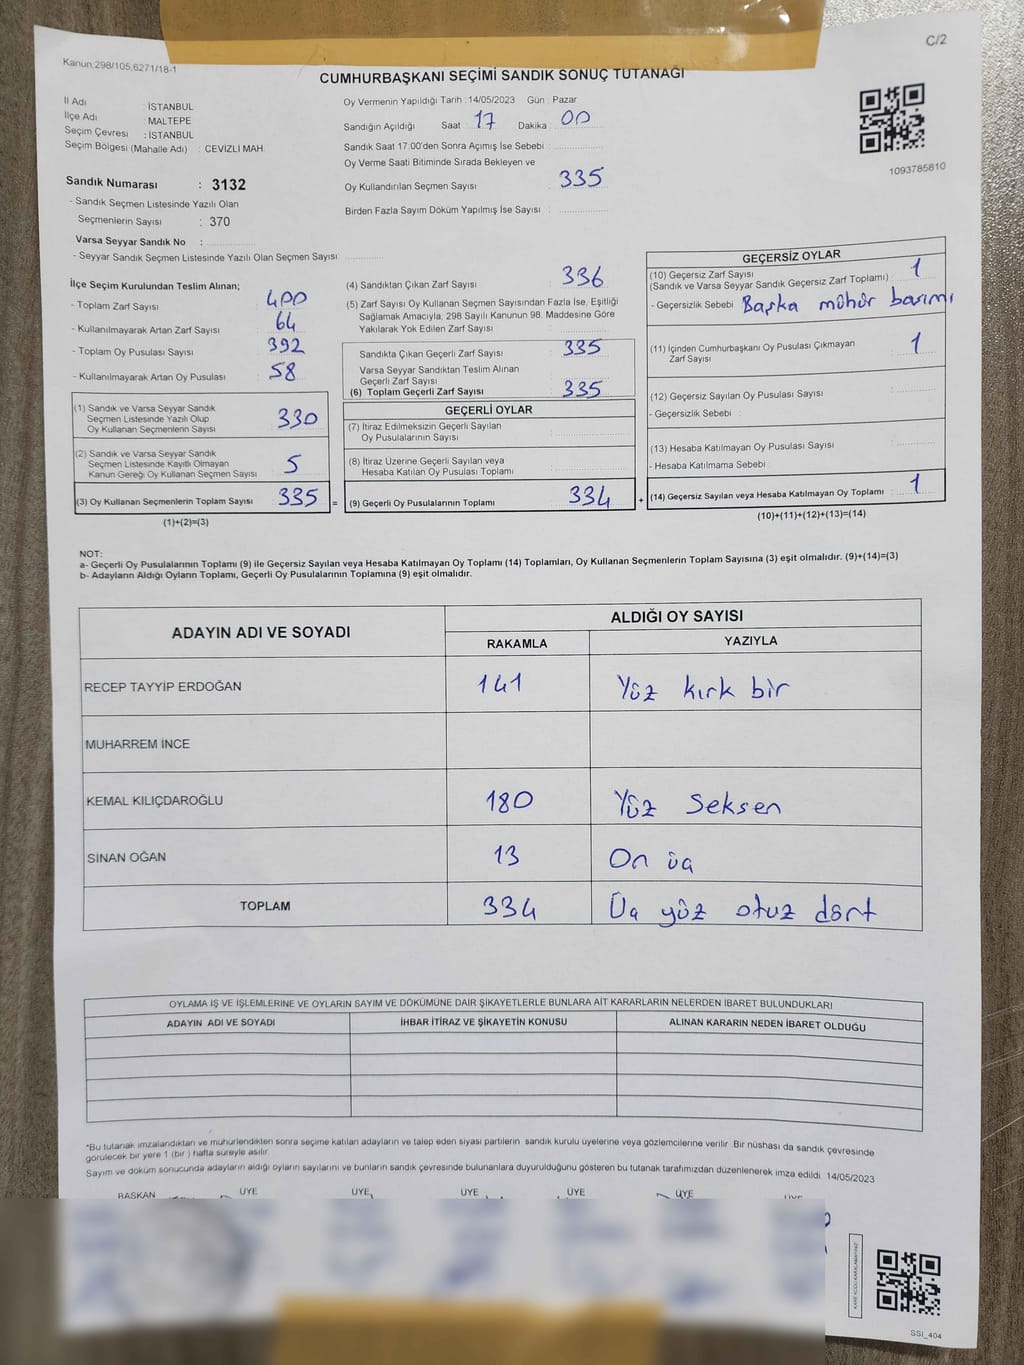 C/2
Kanun:298/105,6271/18-1
CUMHURBAŞKANI SEÇİMİ SANDIK SONUÇ TUTANAĞI
İl Adı : İSTANBUL
İlçe Adı : MALTEPE
Seçim Çevresi : İSTANBUL
Seçim Bölgesi (Mahalle Adı) : CEVİZLİ MAH.
Sandık Numarası : 3132
- Sandık Seçmen Listesinde Yazılı Olan
Seçmenlerin Sayısı : 370
Varsa Seyyar Sandık No :
- Seyyar Sandık Seçmen Listesinde Yazılı Olan Seçmen Sayısı:
Oy Vermenin Yapıldığı Tarih : 14/05/2023 Gün : Pazar
Sandığın Açıldığı Saat : 17 Dakika : 00
Sandık Saat 17:00'den Sonra Açımış İse Sebebi :
Oy Verme Saati Bitiminde Sırada Bekleyen ve
Oy Kullandırılan Seçmen Sayısı : 335
Birden Fazla Sayım Döküm Yapılmış İse Sayısı :
1093785810
İlçe Seçim Kurulundan Teslim Alınan;
- Toplam Zarf Sayısı : 400
- Kullanılmayarak Artan Zarf Sayısı : 64
- Toplam Oy Pusulası Sayısı : 392
- Kullanılmayarak Artan Oy Pusulası : 58
(1) Sandık ve Varsa Seyyar Sandık
Seçmen Listesinde Yazılı Olup
Oy Kullanan Seçmenlerin Sayısı : 330
(2) Sandık ve Varsa Seyyar Sandık
Seçmen Listesinde Kayıtlı Olmayan
Kanun Gereği Oy Kullanan Seçmen Sayısı : 5
(3) Oy Kullanan Seçmenlerin Toplam Sayısı : 335 =
(1)+(2)=(3)
(4) Sandıktan Çıkan Zarf Sayısı : 336
(5) Zarf Sayısı Oy Kullanan Seçmen Sayısından Fazla İse, Eşitliği
Sağlamak Amacıyla, 298 Sayılı Kanunun 98. Maddesine Göre
Yakılarak Yok Edilen Zarf Sayısı :
Sandıkta Çıkan Geçerli Zarf Sayısı : 335
Varsa Seyyar Sandıktan Teslim Alınan
Geçerli Zarf Sayısı :
(6) Toplam Geçerli Zarf Sayısı : 335
GEÇERLİ OYLAR
(7) İtiraz Edilmeksizin Geçerli Sayılan
Oy Pusulalarının Sayısı :
(8) İtiraz Üzerine Geçerli Sayılan veya
Hesaba Katılan Oy Pusulası Toplamı :
(9) Geçerli Oy Pusulalarının Toplamı : 334 +
GEÇERSİZ OYLAR
(10) Geçersiz Zarf Sayısı
(Sandık ve Varsa Seyyar Sandık Geçersiz Zarf Toplamı) : 1
- Geçersizlik Sebebi : Başka mühür basımı
(11) İçinden Cumhurbaşkanı Oy Pusulası Çıkmayan
Zarf Sayısı : 1
(12) Geçersiz Sayılan Oy Pusulası Sayısı :
- Geçersizlik Sebebi :
(13) Hesaba Katılmayan Oy Pusulası Sayısı :
- Hesaba Katılmama Sebebi
(14) Geçersiz Sayılan veya Hesaba Katılmayan Oy Toplamı : 1
(10)+(11)+(12)+(13)=(14)
NOT:
a- Geçerli Oy Pusulalarının Toplamı (9) ile Geçersiz Sayılan veya Hesaba Katılmayan Oy Toplamı (14) Toplamları, Oy Kullanan Seçmenlerin Toplam Sayısına (3) eşit olmalıdır. (9)+(14)=(3)
b- Adayların Aldığı Oyların Toplamı, Geçerli Oy Pusulalarının Toplamına (9) eşit olmalıdır.
ADAYIN ADI VE SOYADI
ALDIĞI OY SAYISI
RAKAMLA YAZIYLA
RECEP TAYYİP ERDOĞAN 141 Yüz kırk bir
MUHARREM İNCE
KEMAL KILIÇDAROĞLU 180 Yüz Seksen
SİNAN OĞAN 13 On üç
TOPLAM 334 Üç yüz otuz dört
OYLAMA İŞ VE İŞLEMLERİNE VE OYLARIN SAYIM VE DÖKÜMÜNE DAİR ŞİKAYETLERLE BUNLARA AİT KARARLARIN NELERDEN İBARET BULUNDUKLARI
ADAYIN ADI VE SOYADI İHBAR İTİRAZ VE ŞİKAYETİN KONUSU ALINAN KARARIN NEDEN İBARET OLDUĞU
*Bu tutanak imzalandıktan ve mühürlendikten sonra seçime katılan adayların ve talep eden siyasi partilerin sandık kurulu üyelerine veya gözlemcilerine verilir. Bir nüshası da sandık çevresinde
görülecek bir yere 1 (bir ) hafta süreyle asılır.
Sayım ve döküm sonucunda adayların aldığı oyların sayılarını ve bunların sandık çevresinde bulunanlara duyurulduğunu gösteren bu tutanak tarafımızdan düzenlenerek imza edildi. 14/05/2023
BAŞKAN ÜYE ÜYE ÜYE ÜYE ÜYE ÜYE
KARE KODU KARALAMAYINIZ
SSI_404